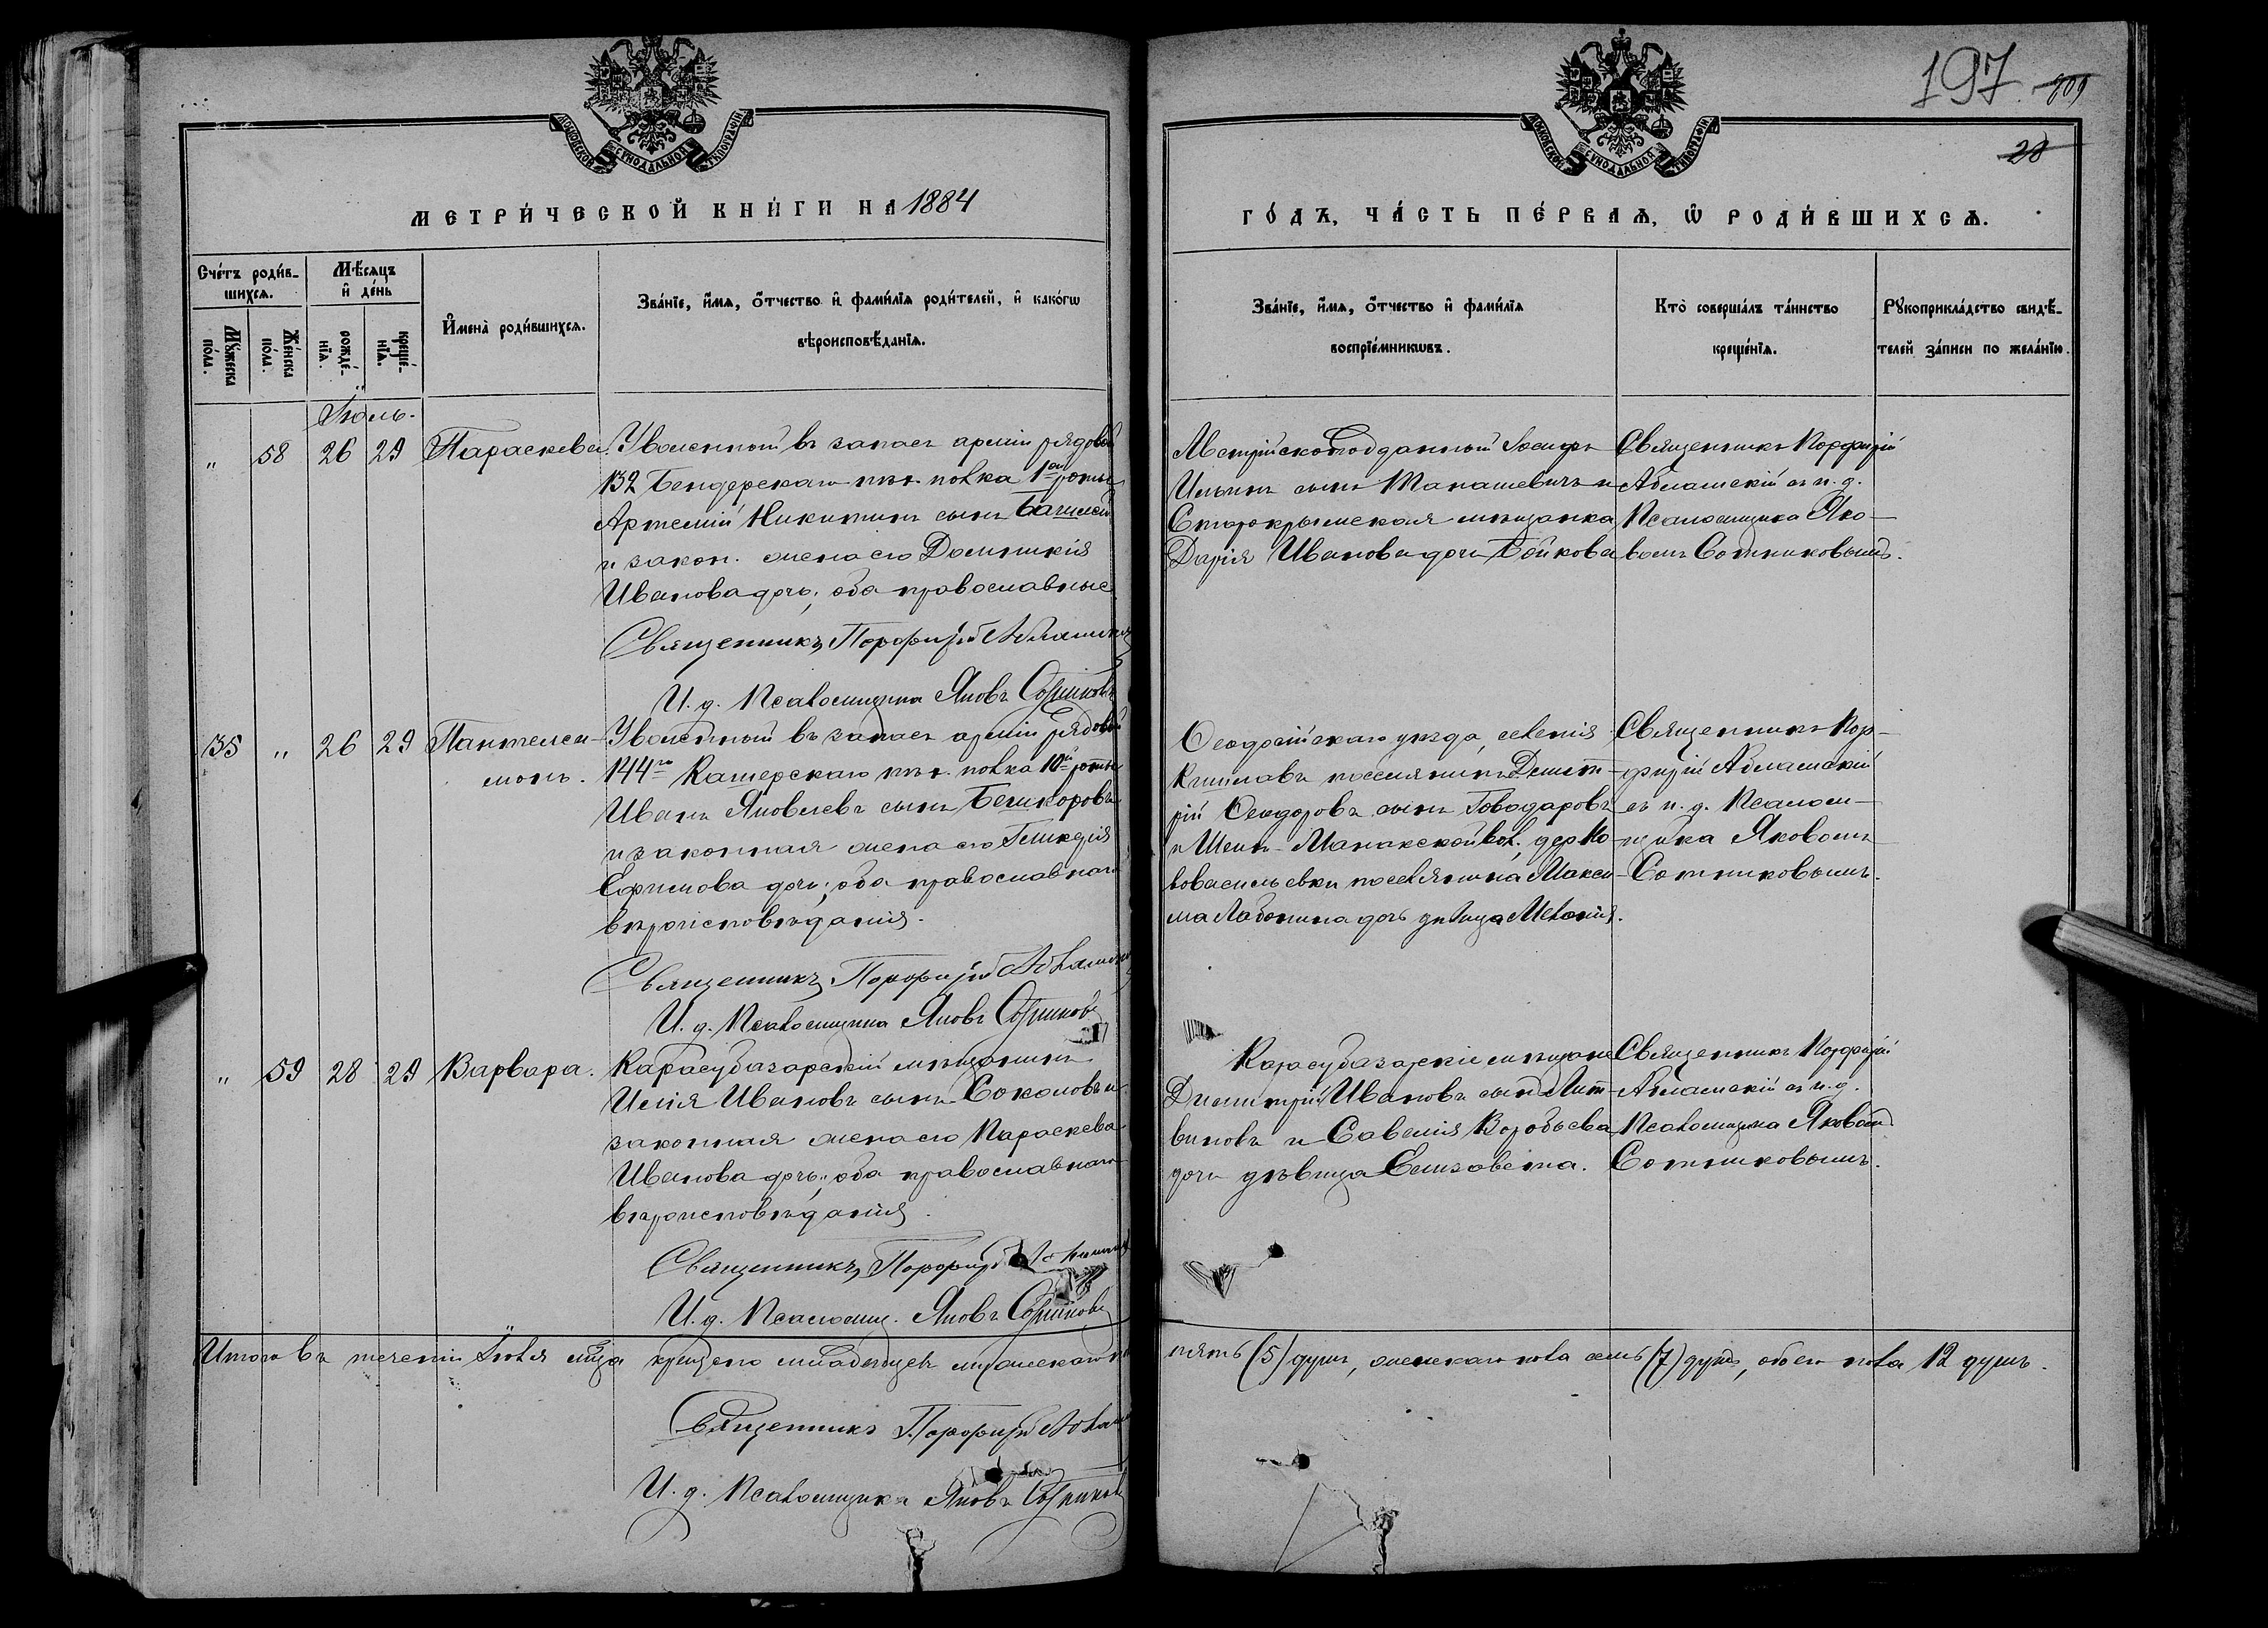 197 809
28
МОСКОВСКОЙ СѴНОДАЛЬНОЙ ТИПОГРАФІИ
МОСКОВСКОЙ СѴНОДАЛЬНОЙ ТИПОГРАФІИ
МЕТРИ́ЧЕСКОЙ КНИ́ГИ НА 1884
ГО́ДЪ, ЧА́СТЬ ПЕ́РВАѦ, Ѡ РОДИ́ВШИХСѦ.
Сче́тъ роди́в-
шихсѧ.
Мѣ́сѧцъ
и де́нь
Мꙋ́жеска
по́ла.
Же́нска
по́ла.
рожде́-
нїѧ.
креще́-
нїѧ.
Имена̀ роди́вшихсѧ.
Зва́нїе, и́мѧ, о́тчество и фами́лїѧ роди́телей, и како́гѡ
вѣроисповѣ́данїѧ.
Зва́нїе, и́мѧ, о́тчество и фами́лїѧ
воспрїе́мникѡвъ.
Кто̀ соверша́лъ та́инство
креще́нїѧ.
Рꙋкоприкла́дство свидѣ́-
телей за́писи по жела́нїю.
Іюль.
" 58 26 29 Параскева. Уволенный въ запасъ арміи рядовой
132 Бендерскаго пѣх. полка 1ой роты
Артемій Никитинъ сынъ
и закон. жена его Домникія
Иванова дочь; оба православные
Священникъ Порфирій
И. д. Псаломщика Яковъ Сотниковъ
Австрійскоподданный Іосифъ
Ильинъ сынъ Манашевичъ и
Старокрымская мѣщанка
Дарія Иванова дочь Бойкова
Священникъ Порфирій
съ и. д.
Псаломщика Яко-
вомъ Сотниковымъ.
35 " 26 29 Пантелеи-
монъ.
Уволенный въ запасъ арміи рядовой
144го Каширскаго пѣх. полка 10й роты
Иванъ Яковлевъ сынъ
и законная жена его Гликерія
Ефимова дочь; оба православнаго
вѣроисповѣданія.
Священникъ Порфирій
И. д. Псаломщика Яковъ Сотниковъ
Ѳеодосійскаго уѣзда, селенія
Кишлавъ поселянинъ Димит-
рій Ѳеодоровъ сынъ Говодаровъ
и Шейх-Манакской вол. дер. Но-
вовасильевки поселянина Макси-
ма дочь дѣвица Меланія.
Священникъ Пор-
фирій
съ и. д. Псалом-
щика Яковомъ
Сотниковымъ.
" 59 28 29 Варвара. Карасубазарскій мѣщанинъ
Илія Ивановъ сынъ Соколовъ и
законная жена его Параскева
Иванова дочь; оба православнаго
вѣроисповѣданія.
Священникъ Порфирій
И. д. Псаломщ. Яковъ Сотниковъ
Карасубазарскіе мѣщане
Димитрій Ивановъ сынъ Лит-
виновъ и Савелія Воробьева
дочь дѣвица Елизавета.
Священникъ Порфирій
съ и. д.
Псаломщика Яковомъ
Сотниковымъ.
Итого въ теченіи Іюля м-ца крещено младенцевъ мужескаго по. пять (5) душъ, женскаго пола семь (7) душъ, обоего пола 12 душъ.
Священникъ Порфирій
И. д. Псаломщика Яковъ Сотниковъ